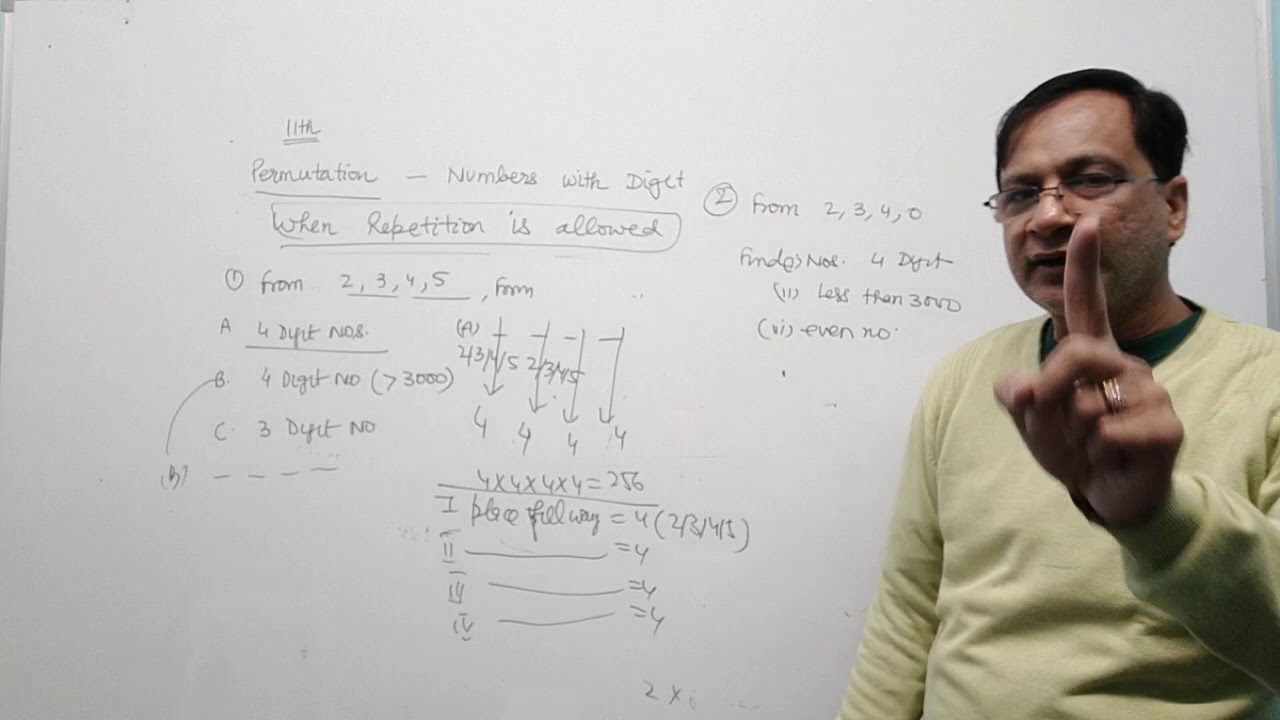 11th
Permutation – Numbers with Digit
When Repetition is allowed
① from 2, 3, 4, 5, form
A 4 Digit Nos.
B. 4 Digit No (> 3000)
C. 3 Digit No
(B) _ _ _ _
(A) _ _ _ _
2/3/4/5 2/3/4/5
4 4 4 4
4×4×4×4=256
I place fill way = 4 (2/3/4/5)
II ——— =4
III ——— =4
IV ——— =4
2 ×
② from 2, 3, 4, 0
Find Nos. 4 Digit
(ii) Less than 3000
even no.